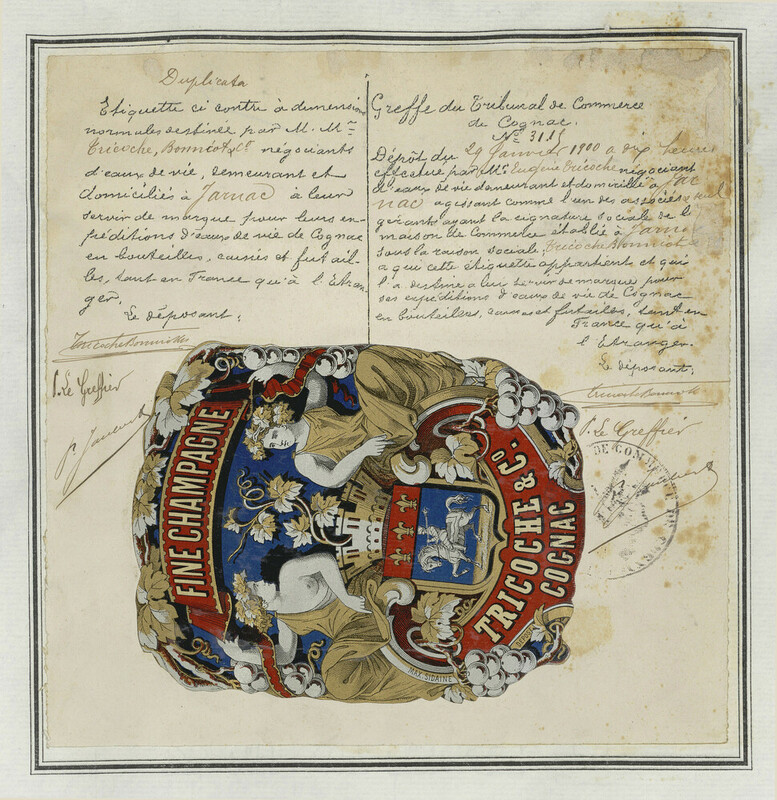 Duplicata
Etiquette ci contre à dimensions
normales destinée par M. Mrs
Tricoche, Bonniot & Cie négociants
d'eaux de vie, demeurant et
domiciliés à Jarnac à leur
servir de marque pour leurs ex-
péditions d'eaux de vie de Cognac
en bouteilles, caisses et futail-
les, tant en France qu'à l'Etran-
ger.
Le déposant:
Tricoche Bonniot & Cie
P. Le Greffier
Greffe du Tribunal de Commerce
de Cognac.
No 3115
Dépôt du 29 Janvier 1900 à dix heures
effectué par Mr Eugène Tricoche négociant
d'eaux de vie demeurant et domicilié à Jar
nac agissant comme l'un des associés
gérants ayant la signature sociale de la
maison de Commerce établie à Jarnac
sous la raison sociale; Tricoche Bonniot &
à qui cette étiquette appartient et qui
l'a destinée à lui servir de marque pour
ses expéditions d'eaux de vie de Cognac
en bouteilles, caisses et futailles, tant en
France qu'à
l'Etranger.
Le déposant:
Tricoche Bonniot &
P. Le Greffier
DE COMMERCE
FINE CHAMPAGNE
TRICOCHE & Co.
COGNAC
MAX. SIDAINE